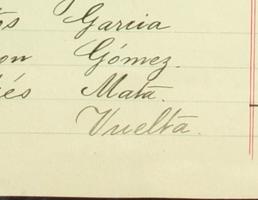 tos Garcia
on Gómez.
és Mata.
Vuelta.